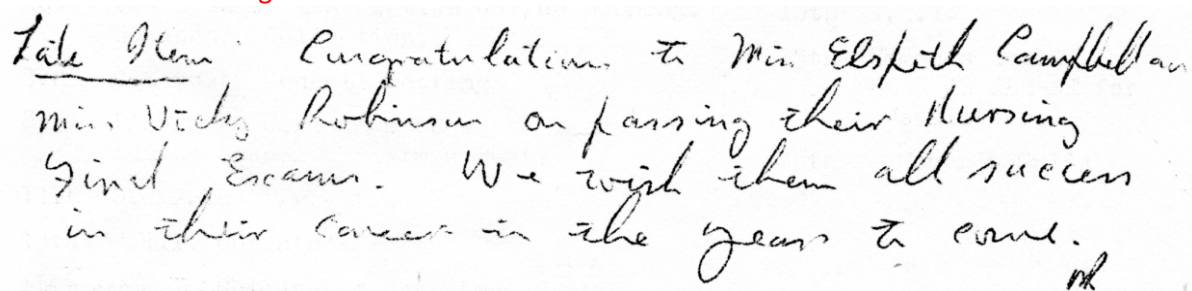 Late Item Congratulations to Miss Elspeth Campbell an
Miss Vicky Robinson on passing their Nursing
Final Exams. We wish them all success
in their career in the years to come.